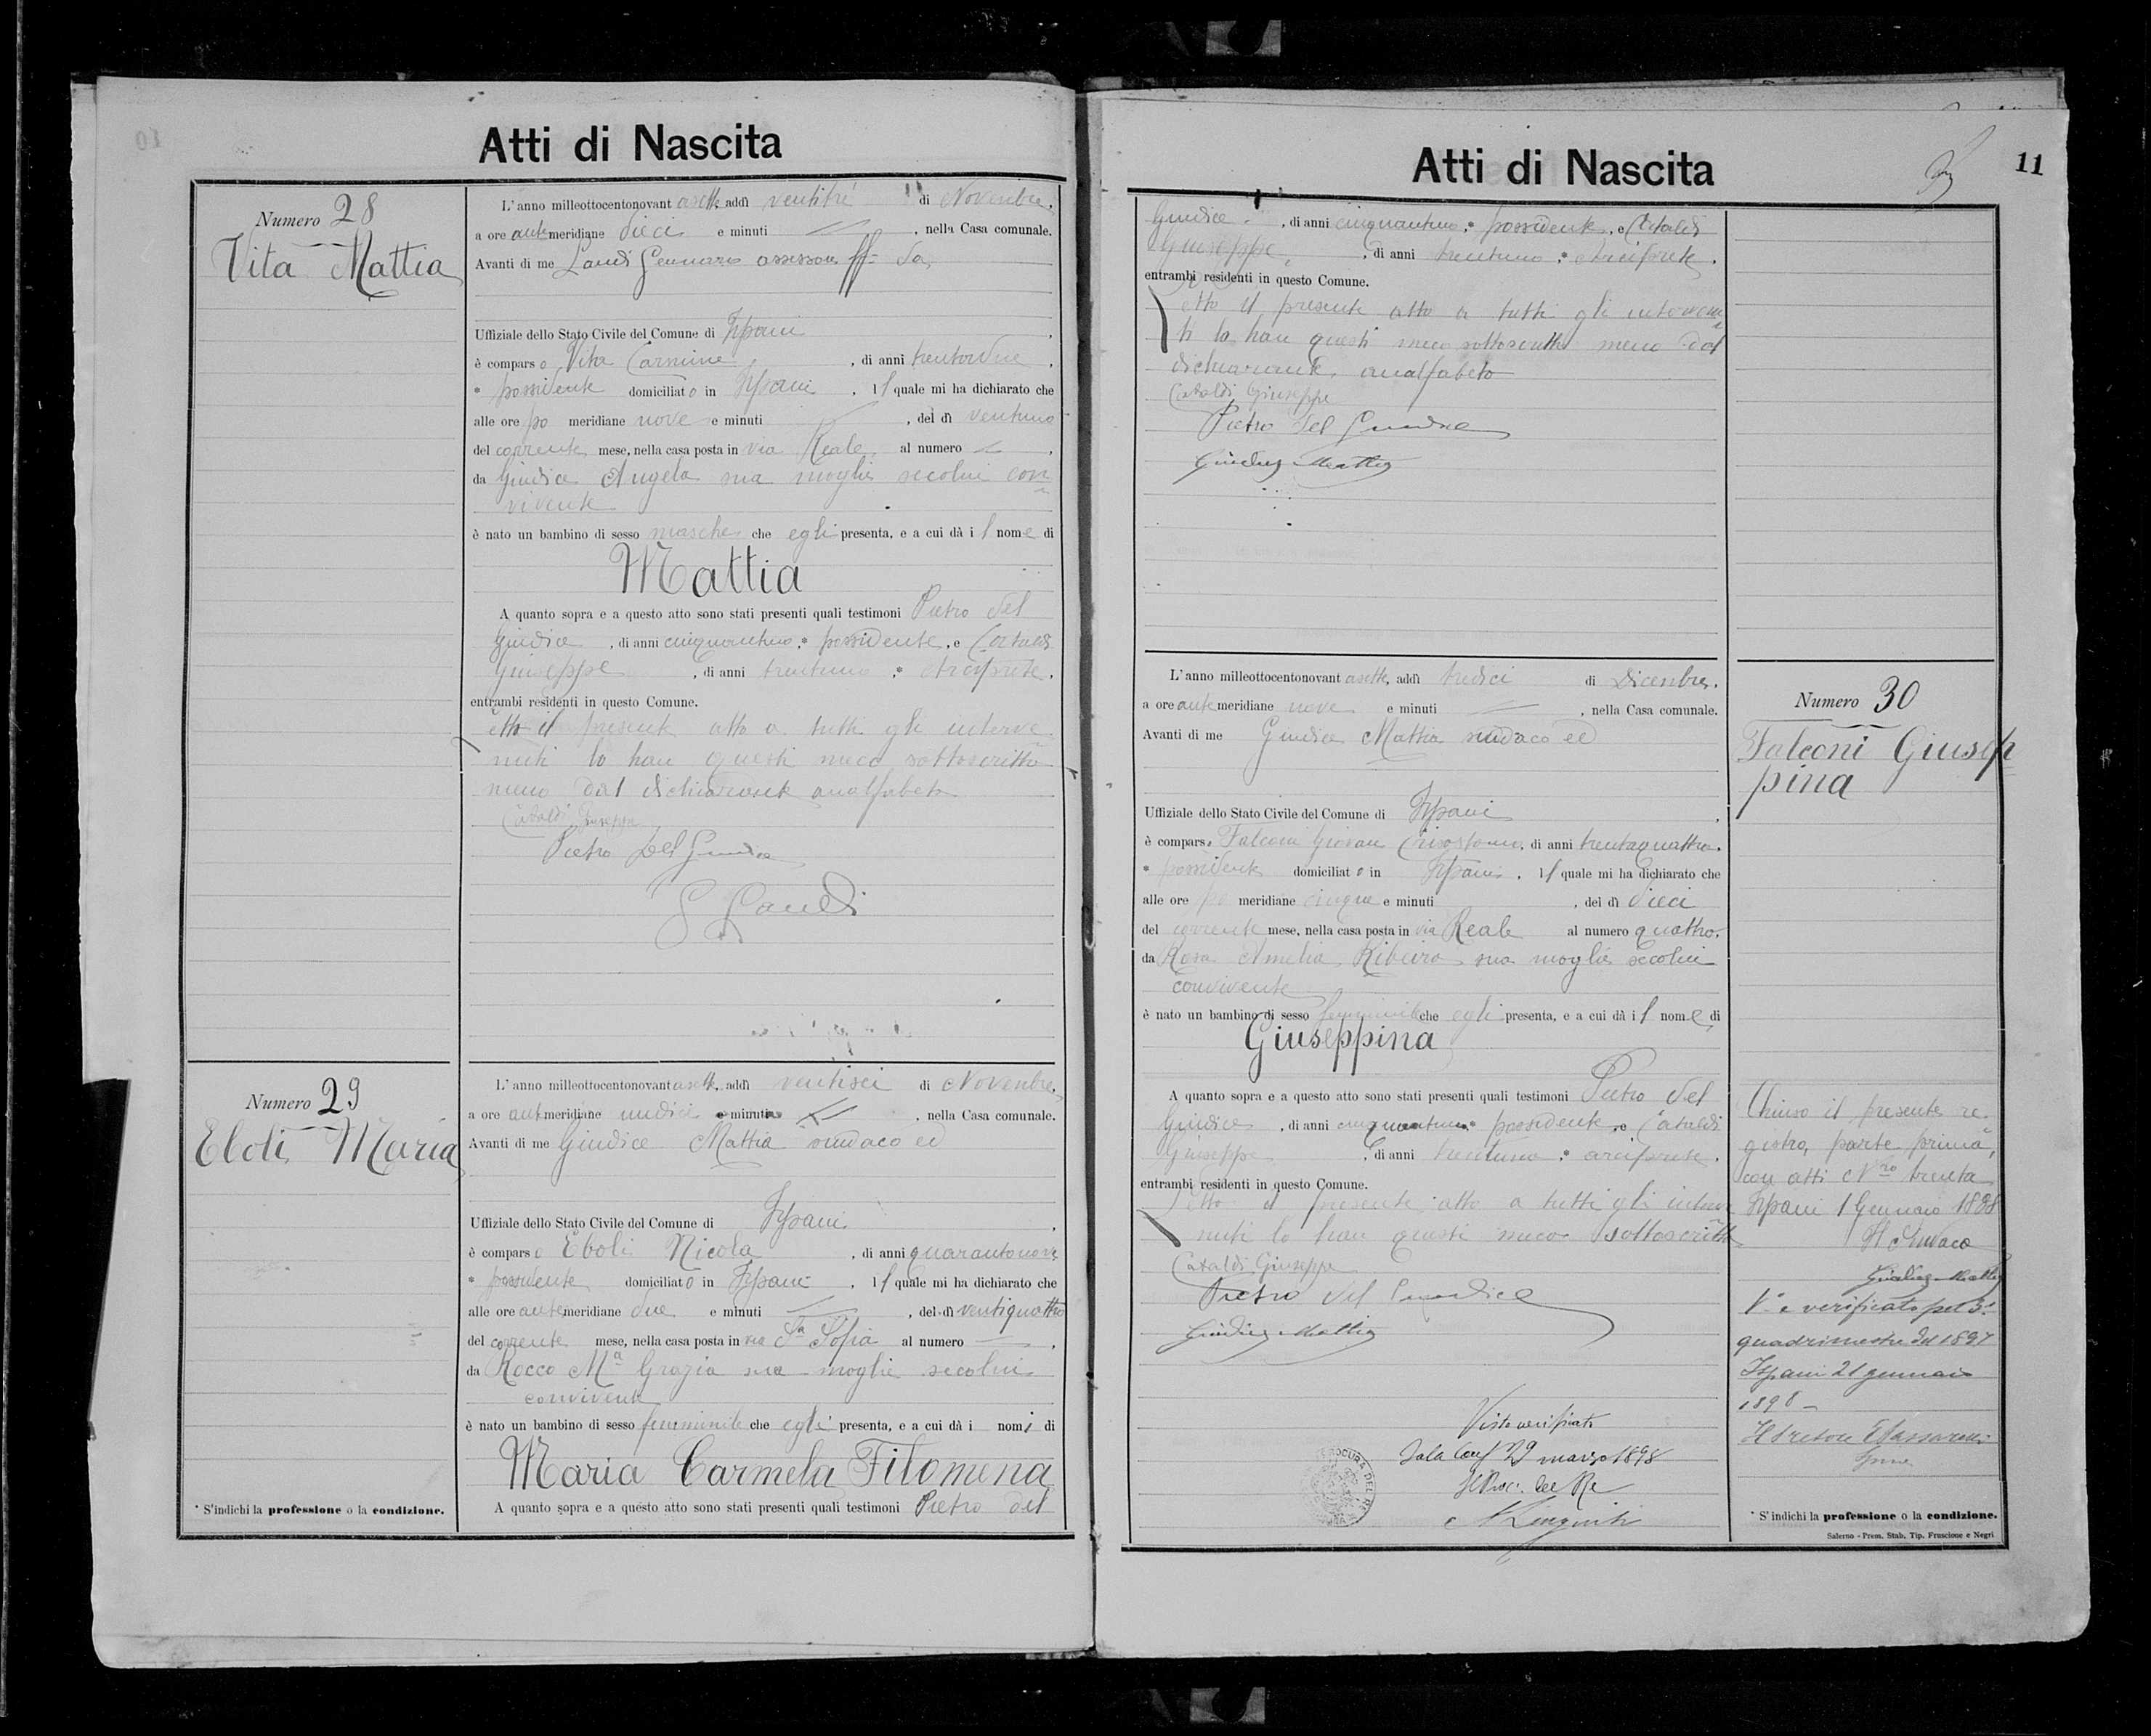 Atti di Nascita
Numero 28
Vita Mattia
L'anno milleottocentonovantasette, addì ventitrè di Novembre,
a ore antemeridiane dieci e minuti , nella Casa comunale.
Avanti di me Landi Gennaro assessore ff= da
Uffiziale dello Stato Civile del Comune di Ispani
è comparso Vita Carmine , di anni trentadue,
* possidente domiciliato in Ispani, il quale mi ha dichiarato che
alle ore po meridiane nove e minuti , del dì ventuno
del corrente mese, nella casa posta in via Reale, al numero ,
da Giudice Angela sua moglie secolui con=
vivente
è nato un bambino di sesso maschile che egli presenta, e a cui dà il nome di
Mattia
A quanto sopra e a questo atto sono stati presenti quali testimoni Pietro del
Giudice , di anni cinquantuno, * possidente, e Cataldi
Giuseppe , di anni trentuno, * Arciprete,
entrambi residenti in questo Comune.
Letto il presente atto a tutti gli interve=
nuti lo han questi meco sottoscritto
meno dal dichiarante analfabeta
Cataldi Giuseppe
Pietro Del Giudice
G Landi
Numero 29
Eboli Maria
L'anno milleottocentonovantasette, addì ventisei di Novembre,
a ore antemeridiane undici e minuti , nella Casa comunale.
Avanti di me Giudice Mattia sindaco ed
Uffiziale dello Stato Civile del Comune di Ispani,
è comparso Eboli Nicola , di anni quarantanove
* possidente domiciliato in Ispani, il quale mi ha dichiarato che
alle ore antemeridiane due e minuti , del dì ventiquattro
del corrente mese, nella casa posta in via Sta Sofia al numero ,
da Rocco Ma Grazia sua moglie secolui
convivente
è nato un bambino di sesso femminile che egli presenta, e a cui dà i nomi di
Maria Carmela Filomena
A quanto sopra e a questo atto sono stati presenti quali testimoni Pietro del
* S'indichi la professione o la condizione.
Atti di Nascita
11
Giudice , di anni cinquantuno, * possidente, e Cataldi
Giuseppe, , di anni trentuno, * Arciprete,
entrambi residenti in questo Comune.
Letto il presente atto a tutti gli intervenu=
ti lo han questi meco sottoscritto meno dal
dichiarante analfabeto
Cataldi Giuseppe
Pietro del Giudice
Giudice Mattia
Numero 30
Falconi Giusep=
pina
L'anno milleottocentonovantasette, addì tredici di Dicembre,
a ore antemeridiane nove e minuti , nella Casa comunale.
Avanti di me Giudice Mattia sindaco ed
Uffiziale dello Stato Civile del Comune di Ispani,
è comparso Falconi Giovan Crisostomo, di anni trentaquattro,
* possidente domiciliato in Ispani, il quale mi ha dichiarato che
alle ore po meridiane cinque e minuti , del dì dieci
del corrente mese, nella casa posta in via Reale al numero quattro,
da Rosa Amelia Ribeiro sua moglie secolui
convivente
è nato un bambino di sesso femminile che egli presenta, e a cui dà il nome di
Giuseppina
A quanto sopra e a questo atto sono stati presenti quali testimoni Pietro del
Giudice , di anni cinquantuno, * possidente, e Cataldi
Giuseppe , di anni trentuno, * arciprete,
entrambi residenti in questo Comune.
Letto il presente atto a tutti gli interve
nuti lo han questi meco sottoscritto
Cataldi Giuseppe
Pietro del Giudice
Giudice Mattia
Visto verificato
Sala Cons 29 marzo 1898
Il Proc. del Re
Chiuso il presente re=
gistro, parte prima,
con atti Nro trenta
Ispani 1 Gennaio 1898
Il Sindaco
Giudice Mattia
Vo e verificato pel 3o
quadrimestre del 1897
Ispani 21 gennaio
1898 -
Il Pretore
* S'indichi la professione o la condizione.
Salerno - Prem. Stab. Tip. Fruscione e Negri